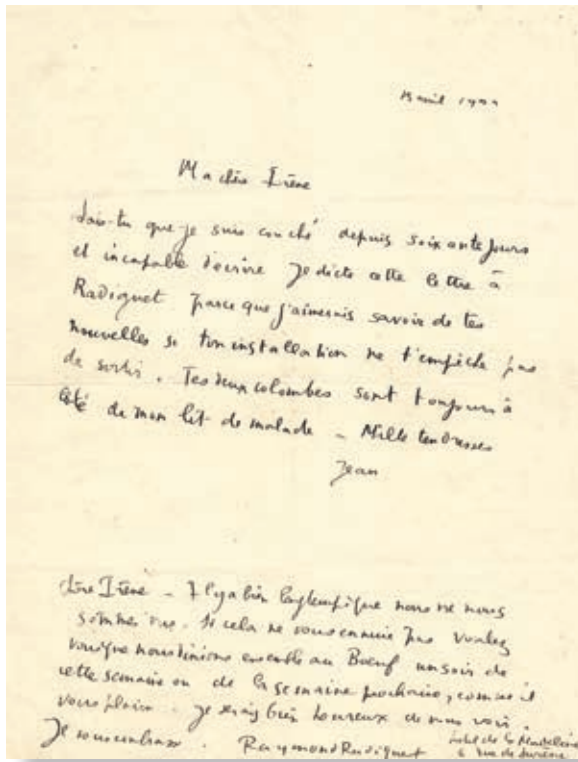 avril 1922
Ma chère Irène
Sais-tu que je suis couché depuis soixante jours
et incapable d'écrire Je dicte cette lettre à
Radiguet parce que j'aimerais savoir de tes
nouvelles si ton installation ne t'empêche pas
de sortir. Tes deux colombes sont toujours à
côté de mon lit de malade – Mille tendresses
Jean
Chère Irène – Il y a bien longtemps que nous ne nous
sommes vus. Si cela ne vous ennuie pas voulez
vous que nous dînions ensemble au Bœuf un soir de
cette semaine ou de la semaine prochaine, comme il
vous plaira. Je serais bien heureux de vous voir.
Je vous embrasse. Raymond Radiguet
hôtel de la Madeleine
6 rue de Surène